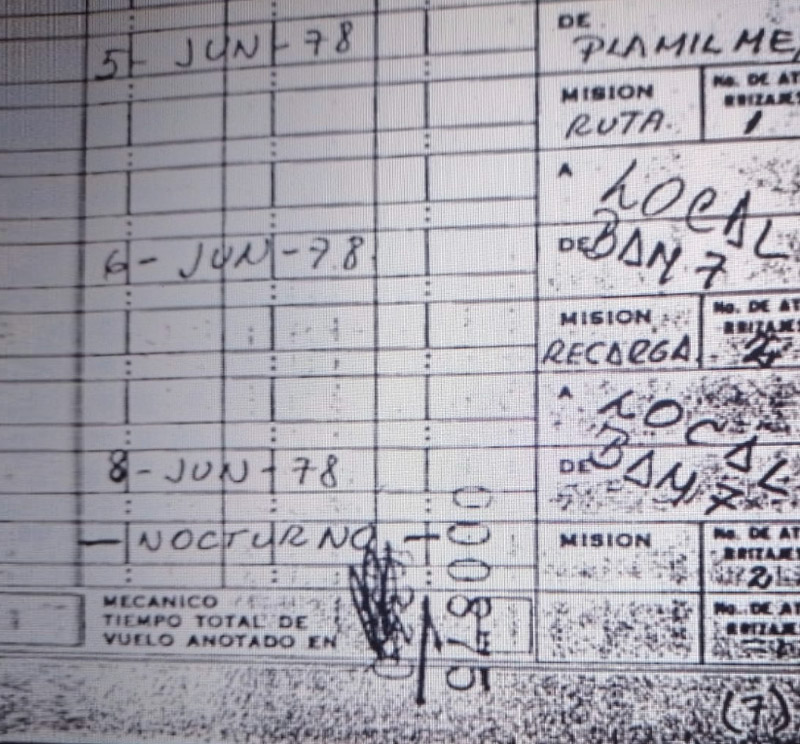 DE
5 - JUN - 78
PLAMILME
MISION
No. DE AT
RRIZAJES
RUTA
1
A
LOCAL
6 - JUN - 78
DE BAM 7
MISION
No. DE AT
RRIZAJES
RECARGA
2
A
LOCAL
8 - JUN - 78
DE BAM 7
— NOCTURNO —
MISION
No. DE AT
RRIZAJES
2
MECANICO
TIEMPO TOTAL DE
VUELO ANOTADO EN
No. DE AT
RRIZAJES
(7)